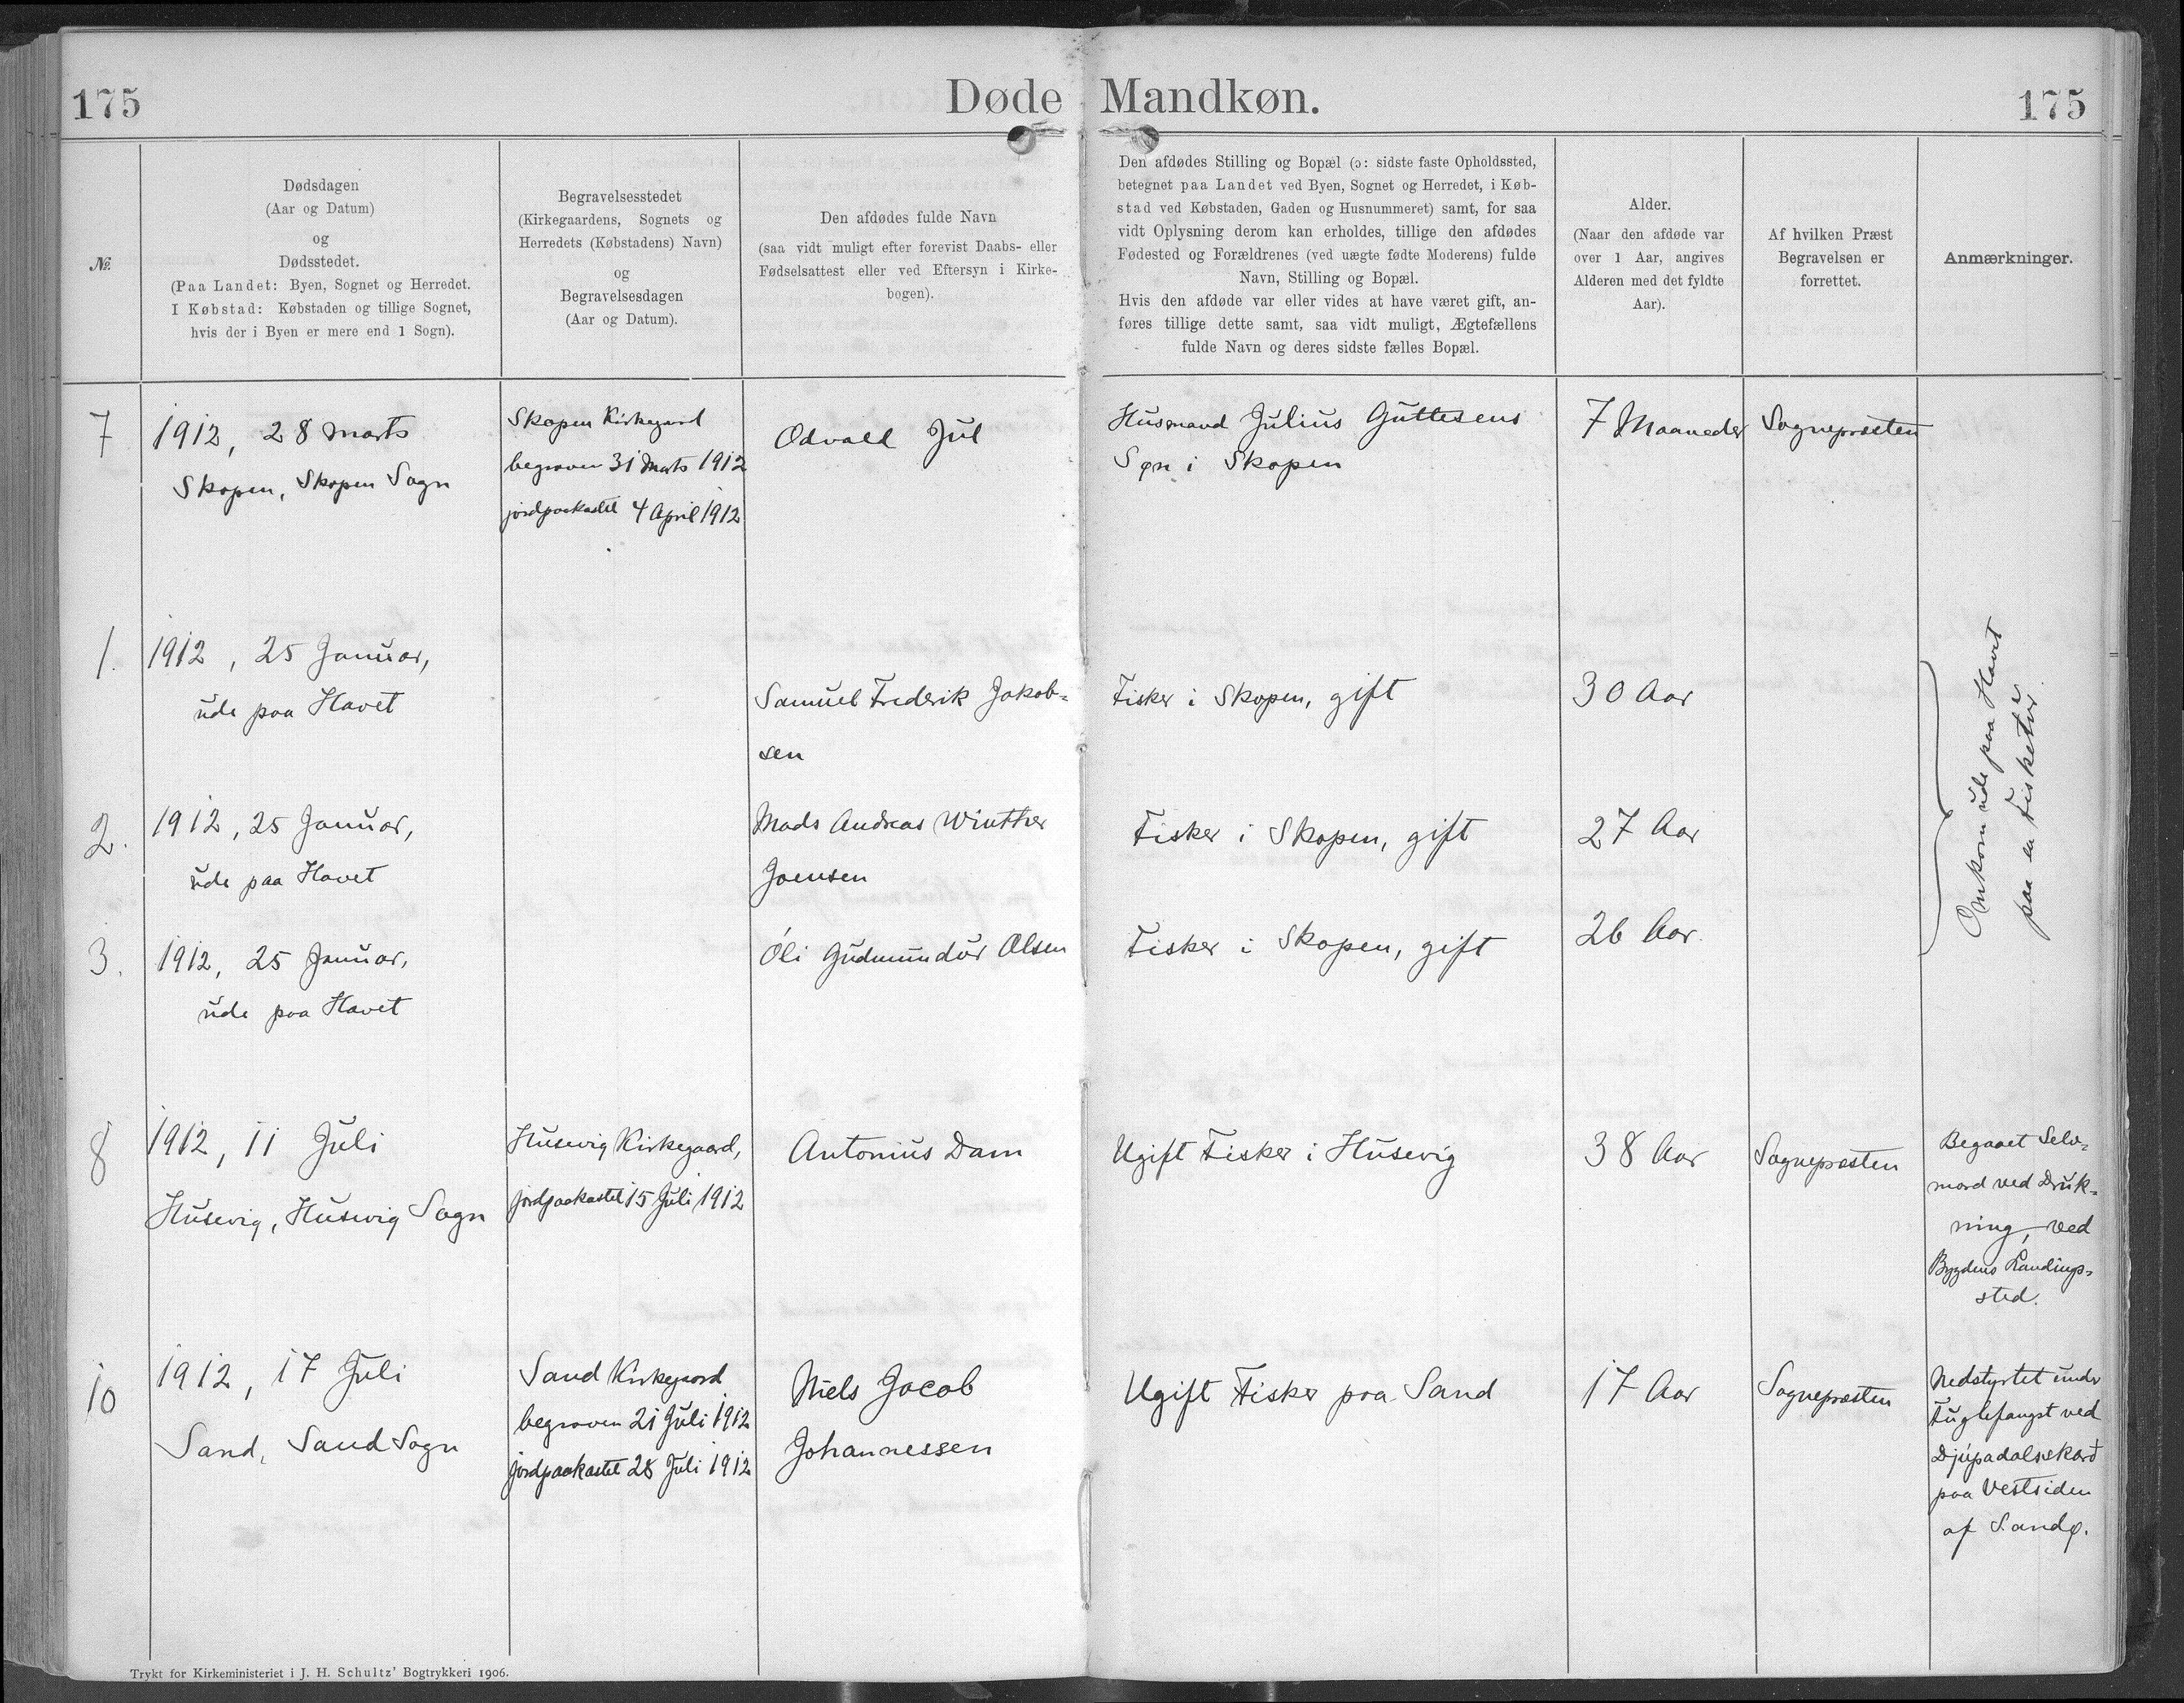 175
Døde Mandkøn.
175
№
Dødsdagen
(Aar og Datum)
og
Dødsstedet.
(Paa Landet: Byen, Sognet og Herredet.
I Købstad: Købstaden og tillige Sognet,
hvis der i Byen er mere end 1 Sogn).
Begravelsesstedet
(Kirkegaardens, Sognets og
Herredets (Købstadens) Navn)
og
Begravelsesdagen
(Aar og Datum).
Den afdødes fulde Navn
(saa vidt muligt efter forevist Daabs- eller
Fødselsattest eller ved Eftersyn i Kirke-
bogen).
Den afdødes Stilling og Bopæl (ɔ: sidste faste Opholdssted,
betegnet paa Landet ved Byen, Sognet og Herredet, i Køb-
stad ved Købstaden, Gaden og Husnummeret) samt, for saa
vidt Oplysning derom kan erholdes, tillige den afdødes
Fødested og Forældrenes (ved uægte fødte Moderens) fulde
Navn, Stilling og Bopæl.
Hvis den afdøde var eller vides at have været gift, an-
føres tillige dette samt, saa vidt muligt, Ægtefællens
fulde Navn og deres sidste fælles Bopæl.
Alder.
(Naar den afdøde var
over 1 Aar, angives
Alderen med det fyldte
Aar).
Af hvilken Præst
Begravelsen er
forrettet.
Anmærkninger.
7
1912, 28 Marts
Skopen, Skopen Sogn
Skopen Kirkegaard
begraven 31 Marts 1912
jordpaakastet 4 April 1912
Odvald Jul
Husmand Julius Guttesens
Søn i Skopen
7 Maaneder
Sognepræsten
1.
1912, 25 Januar,
ude paa Havet
Samuel Frederik Jakob-
sen
Fisker i Skopen, gift
30 Aar
Omkom ude paa Havet
paa en Fisketur.
2.
1912, 25 Januar,
ude paa Havet
Mads Andreas Winther
Joensen
Fisker i Skopen, gift
27 Aar
3.
1912, 25 Januar,
ude paa Havet
Óli Gudmundur Olsen
Fisker i Skopen, gift
26 Aar.
8
1912, 11 Juli
Husevig, Husevig Sogn
Husevig Kirkegaard,
jordpaakastet 15 Juli 1912
Antonius Dam
Ugift Fisker i Husevig
38 Aar
Sognepræsten
Begaaet Selv-
mord ved Druk-
ning, ved
Bygdens Landings-
sted.
10
1912, 17 Juli
Sand, Sand Sogn
Sand Kirkegaard
begraven 21 Juli 1912
jordpaakastet 28 Juli 1912
Niels Jacob
Johannessen
Ugift Fisker paa Sand
17 Aar
Sognepræsten
Nedstyrtet under
Fuglefangst ved
Djúpadalsskard
paa Vestsiden
af Sandø.
Trykt for Kirkeministeriet i J. H. Schultz' Bogtrykkeri 1906.